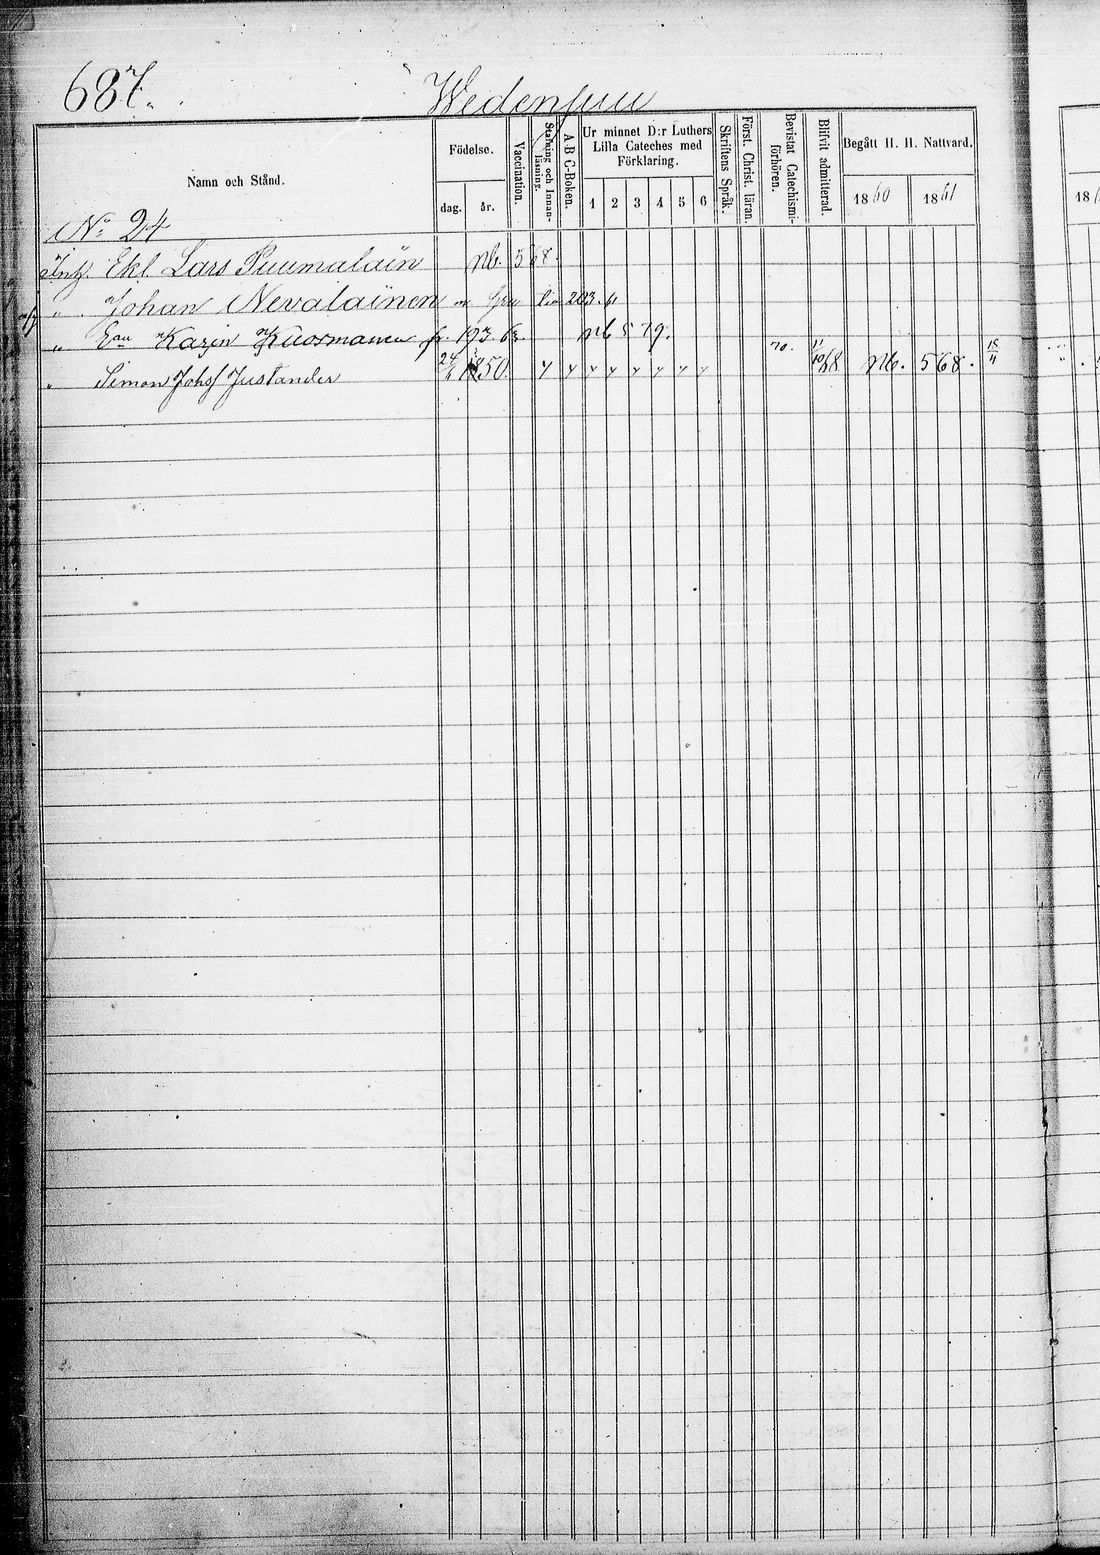 687.
Wedensuu
Namn och Stånd.
Födelse.
dag.
år.
Vaccination.
Stafning och Innanläsning.
A-B C-Boken.
Ur minnet D:r Luthers
Lilla Cateches med
Förklaring.
1 2 3 4 5 6
Skriftens Språk.
Först. Christ. läran.
Bevistat Catechismiförhören.
Blifvit admitterad.
Begått H. H. Nattvard.
1860 1861
18
No 24
Inh. Ekl Lars Puumalain nb 568.
" Johan Nevalainen
" Karin Kuosmanen fr. 193. 63. nb 579.
" Simon Johs Justander 24 1850 70. 11 10 68 nb. 568. 18 11